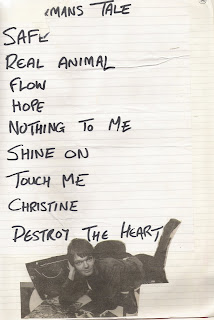 MANS TALE
SAFE
REAL ANIMAL
FLOW
HOPE
NOTHING TO ME
SHINE ON
TOUCH ME
CHRISTINE
DESTROY THE HEART